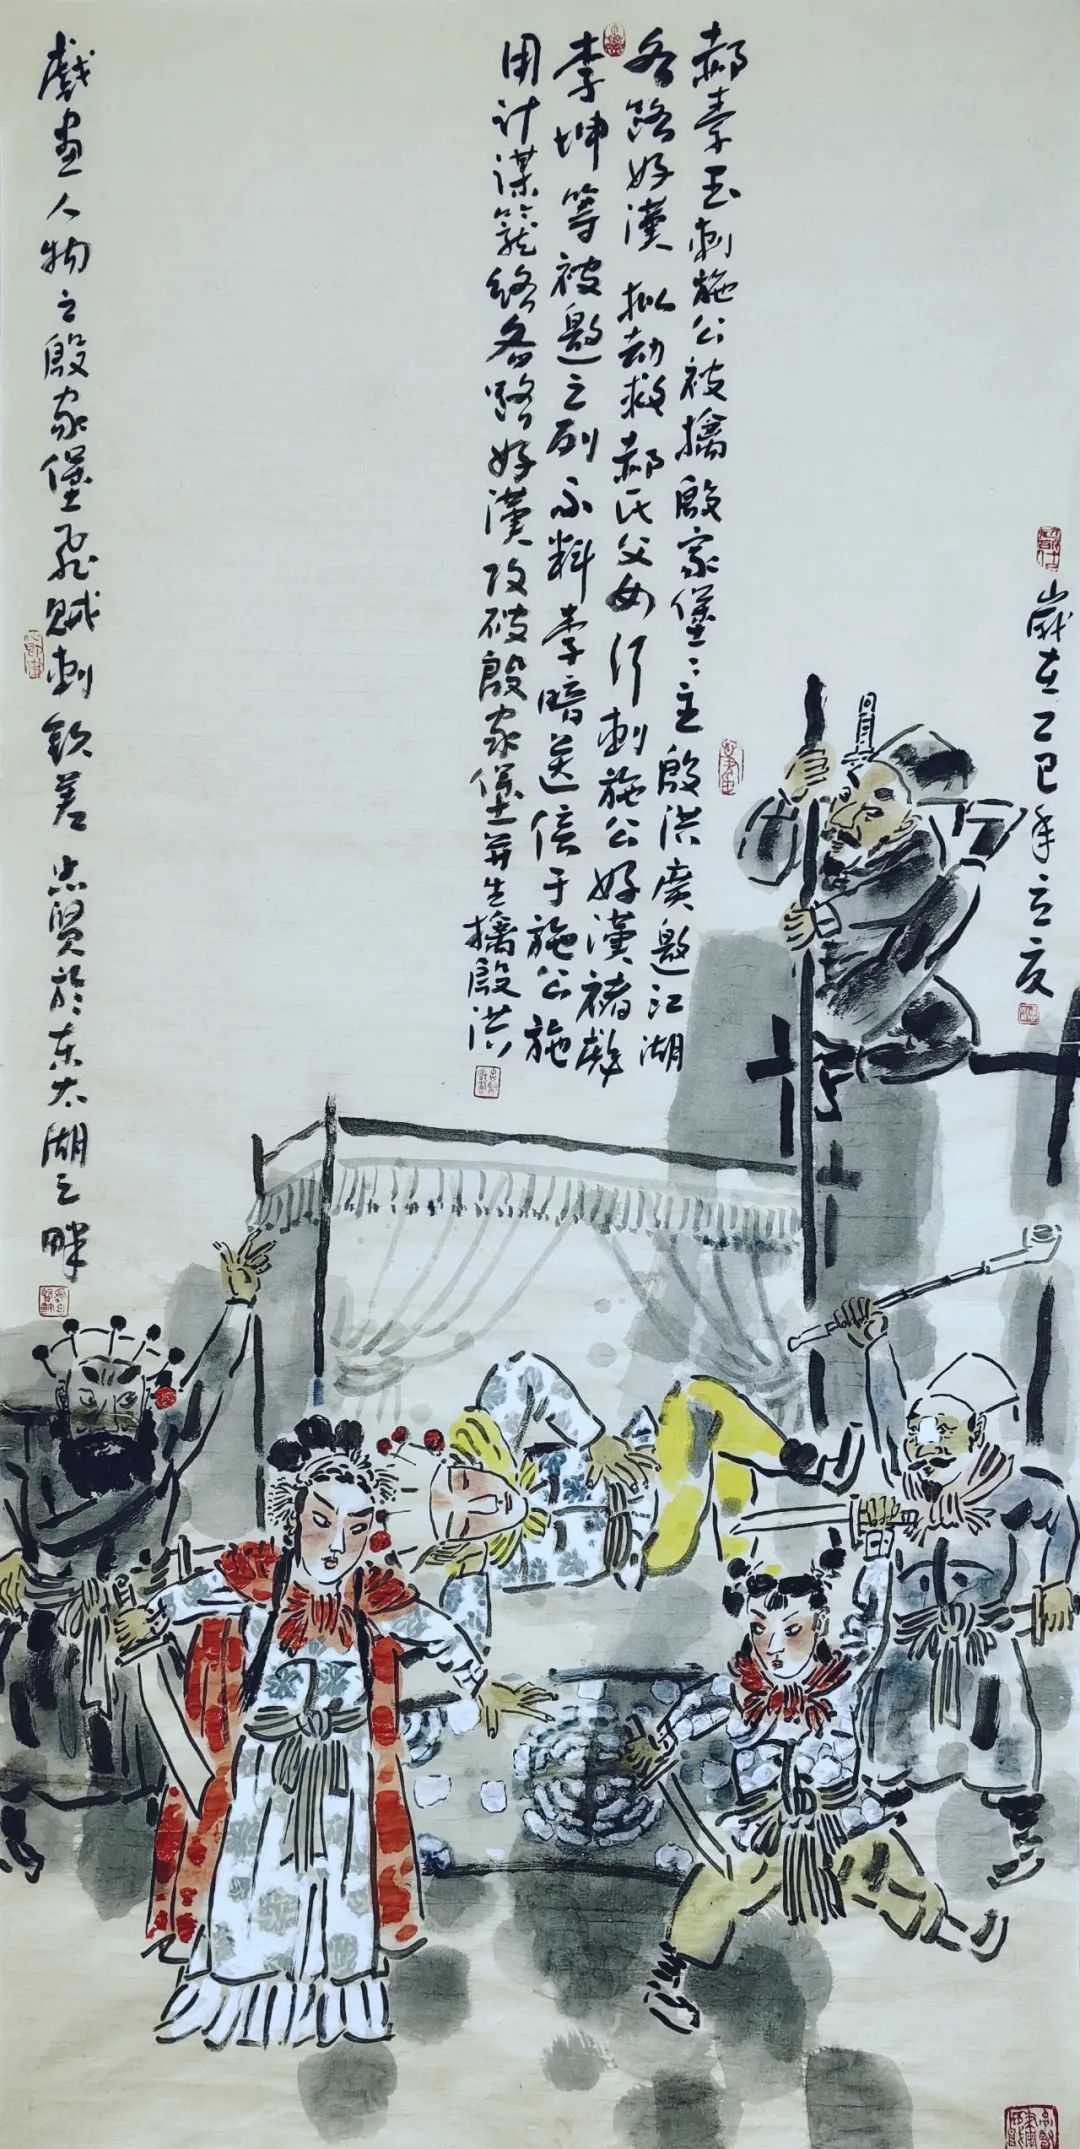 歲在乙巳年立夏
郝素玉刺施公被擒殷家堡〻主殷洪廣邀江湖
各路好漢拟劫救郝氏父女行刺施公好漢褚彪
李坤等被邀之列不料李暗送信于施公施
用计謀籠络各路好漢攻破殷家堡并生擒殷洪
戲畫人物之殷家堡飛贼刺钦差 忠賢於东太湖之畔